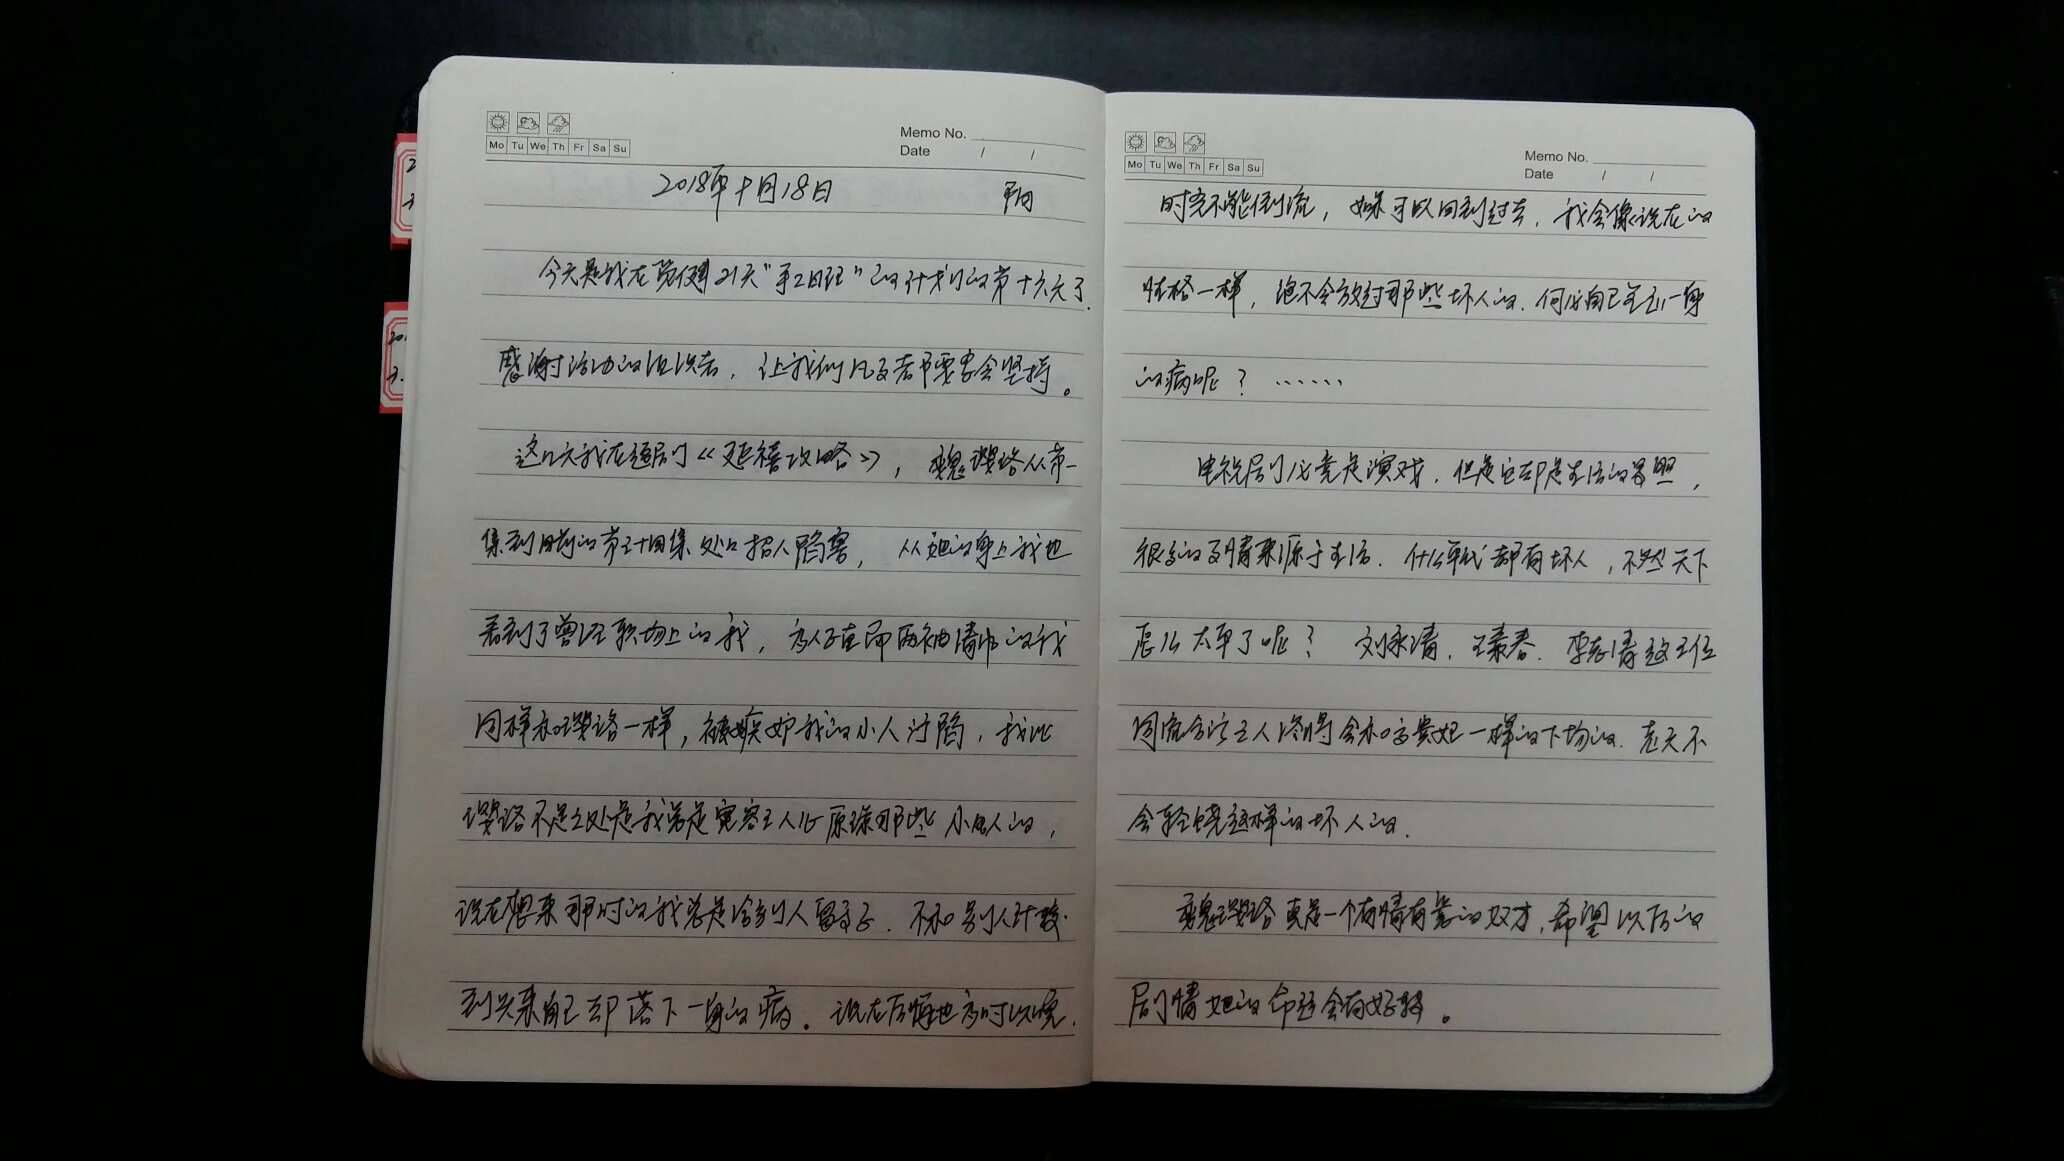 Mo Tu We Th Fr Sa Su
Memo No.
Date / /
2018年十月18日
今天是我在简书21天"手工日记"的计划的第十六天了.
感谢活动的组织者，让我们凡多者都要学会坚持。
这几天我在追剧《延禧攻略》，魏璎珞从第一
集到目前的第五十四集处处招人陷害，从她的身上我也
看到了曾经职场上的我，为人正直两袖清风的我
同样和璎珞一样，被嫉妒我的小人讨陷，我比
璎珞不足之处是我总是宽容之人心原谅那些小人的，
现在想来那时的我总是给别人留余，不和别人计较.
到头来自己却落下一身的病。现在后悔也为时以晚.
Mo Tu We Th Fr Sa Su
Memo No.
Date / /
时光不能倒流，如果可以回到过去，我会像现在的
性格一样，绝不会放过那些坏人的. 何必自己生了一身
的病呢？……
电视剧必竟是演戏，但是它却是生活的写照，
很多的剧情来源于生活. 什么年代都有坏人，不然天下
怎么太平了呢？刘永清. 王素春. 李志清这三位
同流合污之人终将会和高贵妃一样的下场的. 老天不
会轻饶这样的坏人的.
魏璎珞真是一个有情有意的奴才，希望以后的
剧情她的命运会有好转。